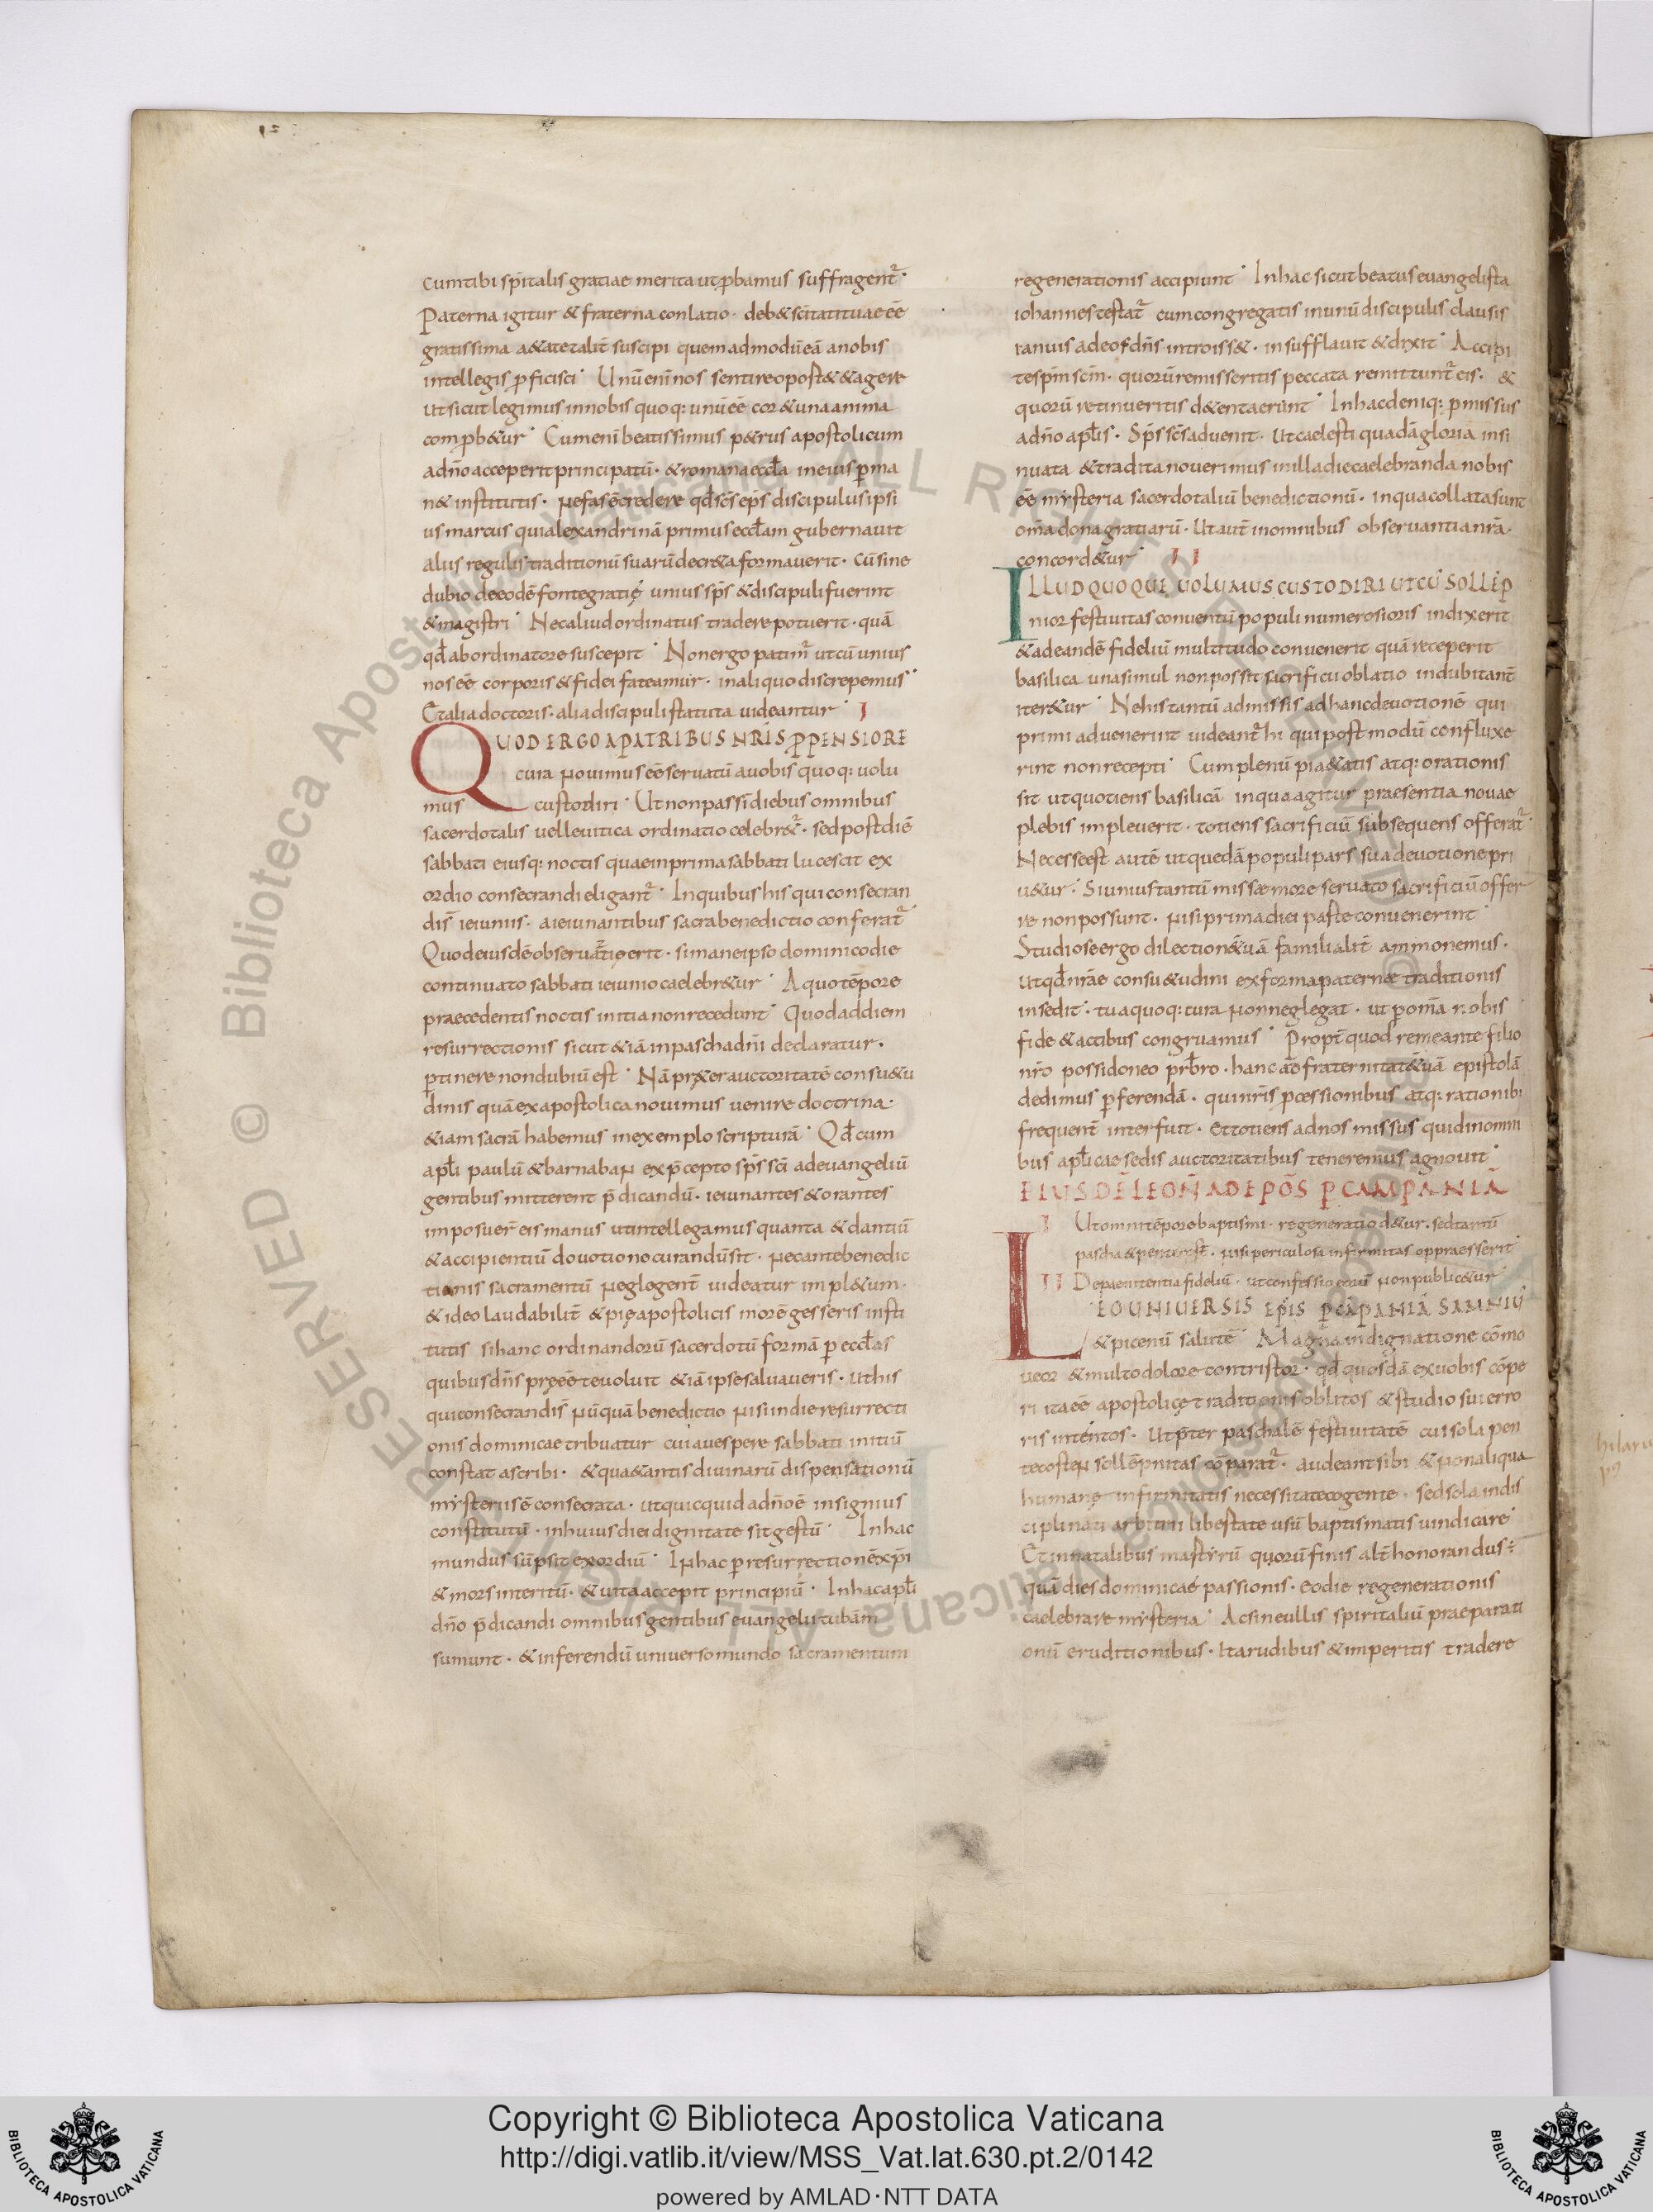 cumtibi sp̄italis gratiae merita ut ꝓbamus suffragent᷑.
Paterna igitur & fraterna conlatio. deb& sc̄itati tuae eē
gratissima a& a te talit̄ suscipi quemadmodū eā a nobis
intellegis ꝓficisci. Unū enī nos sentire oport& & agere
Ut sicut legimus in nobis quoq: unū eē cor & una anima
comꝓb&ur. Cum enī beatissimus p&rus apostolicum
a dn̄o acceperit principatū. & romana eccl̄a in eius ꝑma
n& institutis. Nefas ē credere qd̄ sc̄s ep̄s discipulus ipsi
us marcus qui alexandrinā primus eccl̄am gubernauit
aliis regulis traditionū suarū decr&a formauerit. Cū sine
dubio de eodē fonte gratię unius sp̄s & discipuli fuerint
& magistri. Nec aliud ordinatus tradere potuerit. quā
qd̄ ab ordinatore suscepit. Non ergo patim᷑ ut cū unius
nos eē corporis & fidei fateamur. in aliquo discrepemus.
Et alia doctoris. alia discipuli statuta uideantur. I
QUOD ERGO A PATRIBUS NRĪS ꝒPENSIORE
cura Nouimus eē seruatū a uobis quoq: uolu
mus custodiri. Ut non passī diebus omnibus
sacerdotalis uel leuitica ordinatio celebr&᷑. sed post diē
sabbati eiusq: noctis quae in prima sabbati lucescit ex
ordio consecrandi eligant᷑. In quibus his qui consecran
dis̄ ieiuniis. a ieiunantibus sacra benedictio conferat᷑
Quod eiusdē obseruat̄ię erit. si mane ipso dominico die
continuato sabbati ieiunio caelebr&ur. A quo tēpore
praecedentis noctis initia non recedunt. Quod ad diem
resurrectionis sicut &iā in pascha dn̄i declaratur.
ꝑtinere non dubiū est. Nā pr&er auctoritatē consu&u
dinis quā ex apostolica nouimus uenire doctrina.
&iam sacrā habemus in exemplo scripturā. Qd̄ cum
apl̄i paulū & barnabaN ex p̄cepto sp̄s sc̄i ad euangeliū
gentibus mitterent p̄dicandū. ieiunantes & orantes
imposuer̄ eis manus ut intellegamus quanta & dantiū
& accipientiū deuotione curandū sit. Ne cante benedic
tionis sacramentū Neglegent̄ uideatur impl&um.
& ideo laudabilit̄ & pię apostolicis morē gesseris insti
tutis si hanc ordinandorū sacerdotū formā ꝑ eccl̄as
quibus dn̄s pręeē te uoluit &iā ipse saluaueris. Ut his
qui consecrandis̄ Nūquā benedictio Nisi in die resurrecti
onis dominicae tribuatur cui a uespere sabbati initiū
constat ascribi. & qua&antis diuinarū dispensationū
mẏsteriis ē consecrata. ut quicquid a dn̄o ē insignius
constitutū. in huius diei dignitate sit gestū. In hac
mundus sūpsit exordiū. IN hac ꝑ resurrectionē xp̄i
& mors interitū. & uita accepit principiū. In hac apl̄i
dn̄o p̄dicandi omnibus gentibus euangelii tubām
sumunt. & inferendū uniuerso mundo sacramentum
regenerationis accipiunt. In hac sicut beatus euangelista
iohannes testat᷑ cum congregatis in unū discipulis clausis
ianuis ad eos dn̄s introiss&. insufflauit & dixit. Accipi
te sp̄m sc̄m. quorū remisseritis peccata remittunt᷑ eis. &
quorū r&inueritis d&enta erunt. In hac deniq: ꝓmissus
a dn̄o apl̄is. Sp̄s sc̄s aduenit. Ut caelesti quadā gloria insi
nuata & tradita nouerimus in illa die caelebranda nobis
eē mẏsteria sacerdotaliū benedictionū. in qua collata sunt
om̄a dona gratiarū. Ut aut̄ in omnibus obseruantia nr̄a.
concord&ur. II
ILLUD QUOQUE UOLUMUS CUSTODIRI UT CŪ SOLLĒP
nior festiuitas conuentū populi numerosioris indixerit
& ad eandē fideliū multitudo conuenerit quā receperit
basilica una simul non possit sacrificii oblatio indubitant̄
iter&ur. Ne his tantū admissis ad hanc deuotionē qui
primi aduenerint uideant᷑ hi qui post modū confluxe
rint non recepti. Cum plenū pi&atis atq: orationis
sit ut quotiens basilicā in qua agitur praesentia nouae
plebis impleuerit. totiens sacrificiū subsequens offerat᷑.
Necesse est autē ut quedā populi pars sua deuotione pri
u&ur. Si unius tantū missae more seruato sacrificiū offer
re non possunt. Nisi prima diei parte conuenerint.
Studiose ergo dilectionē uā familialit̄ ammonemus.
Ut qd̄ nr̄ae consu&udini ex forma paternae traditionis
insedit. tua quoq: cura Non neglegat. ut ꝑ om̄a nobis
fide & actibus congruamus. Propt̄ quod remeante filio
nr̄o possidoneo prb̄ro. hanc ad fraternitatē uā epistolā
dedimus ꝑferendā. qui nr̄is ꝓcessionibus atq: rationib:
frequent̄ interfuit. et totiens ad nos missus quid in omni
bus apl̄icae sedis auctoritatibus teneremus agnouit.
EIUSDĒ LEON̄ AD EPŌS Ꝑ CAMPANIĀ
I Ut omni tēpore baptismi. regeneratio d&ur. sed tantū
pascha & pentecost̄. Nisi periculosa infirmitas oppraesserit.
II De paenitentia fideliū. ut confessio eorū Non public&ur.
LEO UNIUERSIS EPĪS Ꝑ CĀPANIĀ SAMNIŪ
& picenū salutē. Magna indignatione cōmo
ueor & multo dolore contristor. qd̄ quosdā ex uobis cōpe
ri ita eē apostolicę traditionis oblitos & studio sui erro
ris intentos. Ut p̄ter paschalē festiuitatē cui sola pen
tecosteN sollēpnitas cōparat᷑. audeant sibi & Non aliqua
humanę infirmitatis necessitate cogente. sed sola indis
ciplinati arbitrii libestate usū baptismatis uindicare.
Et in natalibus martẏrū quorū finis alit̄ honorandus ē
quā dies dominicae passionis. eodie regenerationis
caelebrare mẏsteria. Ac sine ullis spiritaliū praeparati
onū eruditionibus. Ita rudibus & imperitis tradere
hilaru
Copyright © Biblioteca Apostolica Vaticana
http://digi.vatlib.it/view/MSS_Vat.lat.630.pt.2/0142
powered by AMLAD·NTT DATA
BIBLIOTECA APOSTOLICA VATICANA
BIBLIOTECA APOSTOLICA VATICANA